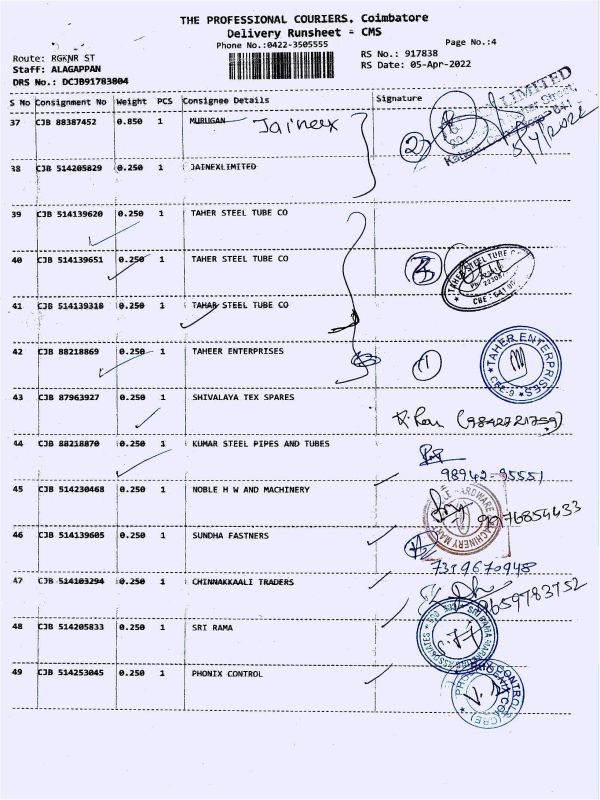 THE PROFESSIONAL COURIERS. Coimbatore
Delivery Runsheet - CMS
Phone No.:0422-3505555
Page No.:4
Route: RGKNR ST
RS No.: 917838
Staff: ALAGAPPAN
RS Date: 05-Apr-2022
DRS No.: DCJB91783804
S No Consignment No Weight PCS Consignee Details Signature
37 CJB 88387452 0.850 1 MURUGAN Jainex
LIMITED
2
5/4/2022
38 CJB 514205829 0.250 1 JAINEXLIMITED
39 CJB 514139620 0.250 1 TAHER STEEL TUBE CO
40 CJB 514139651 0.250 1 TAHER STEEL TUBE CO
TAHER STEEL TUBE
41 CJB 514139318 0.250 1 TAHAR STEEL TUBE CO
42 CJB 88218869 0.250 1 TAHEER ENTERPRISES
1
TAHER ENTERPRISES
CBE-9
43 CJB 87963927 0.250 1 SHIVALAYA TEX SPARES
(9842721759)
44 CJB 88218870 0.250 1 KUMAR STEEL PIPES AND TUBES
98942-95551
45 CJB 514230468 0.250 1 NOBLE H W AND MACHINERY
HARDWARE
MACHINERY
9076854433
46 CJB 514139605 0.250 1 SUNDHA FASTNERS
7319670948
47 CJB 514103294 0.250 1 CHINNAKKAALI TRADERS
8659783752
48 CJB 514205833 0.250 1 SRI RAMA
SRI RAMA
49 CJB 514253045 0.250 1 PHONIX CONTROL